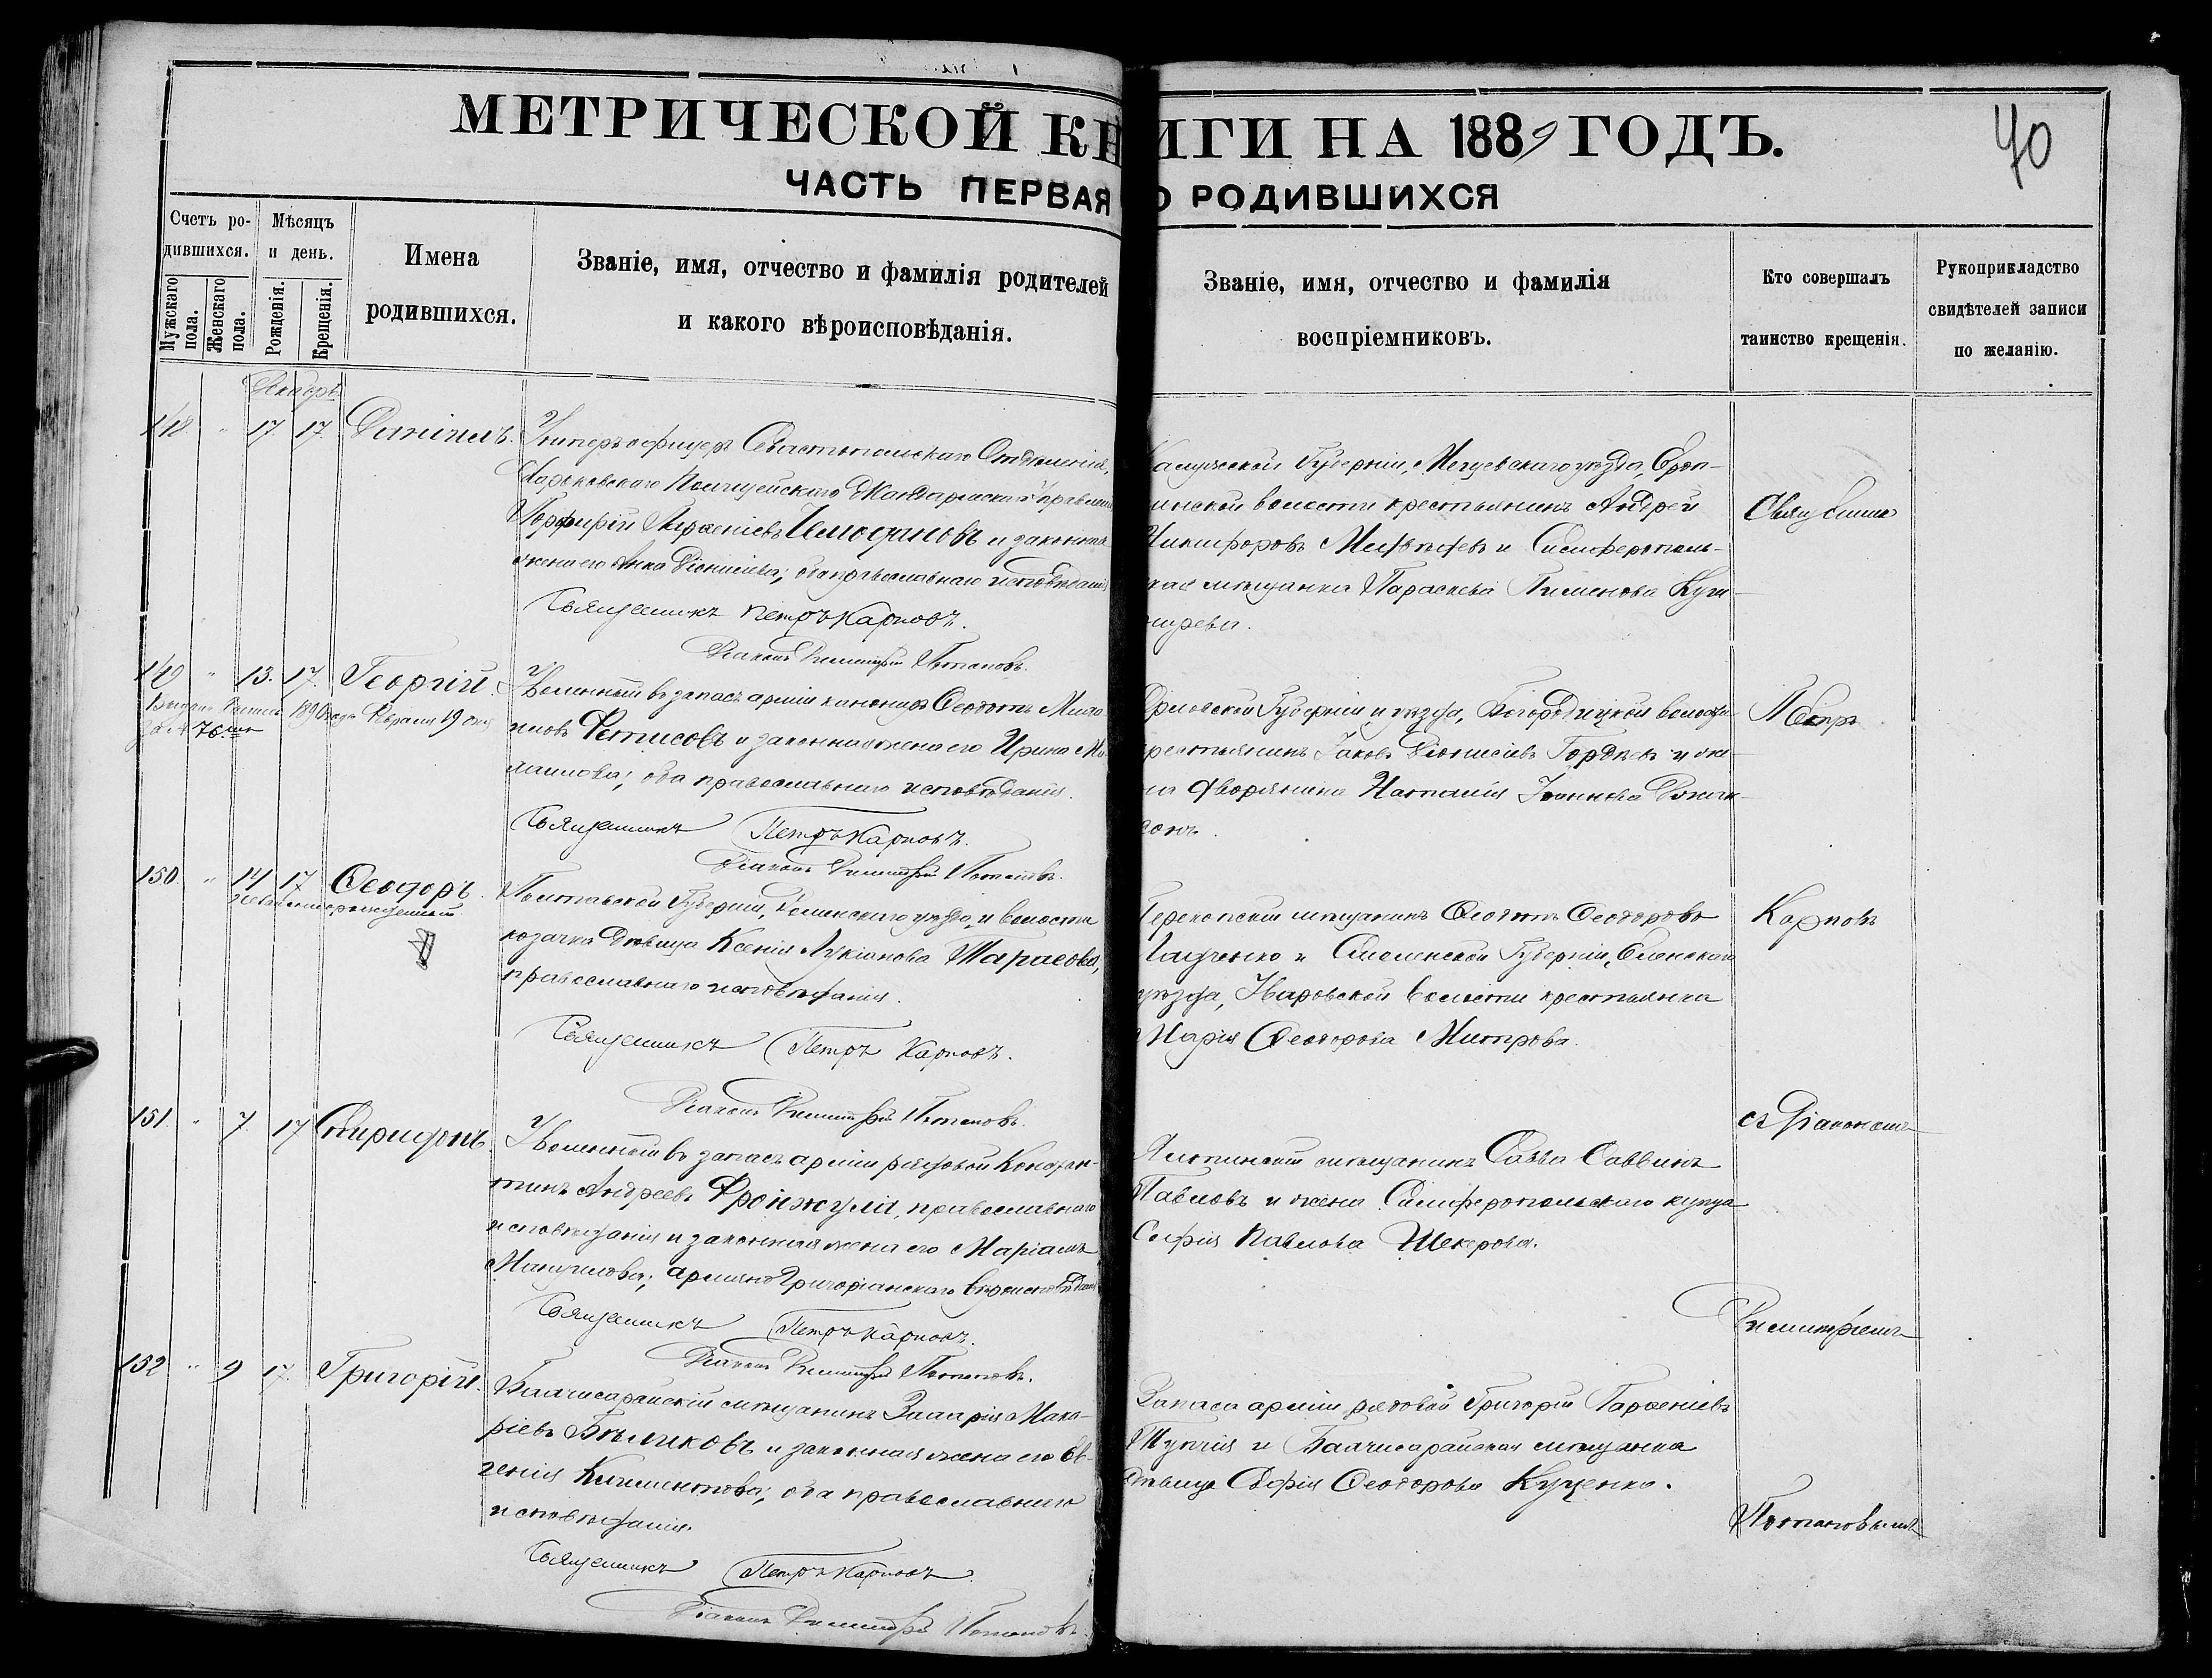 МЕТРИЧЕСКОЙ КНИГИ НА 1889 ГОДЪ.
70
ЧАСТЬ ПЕРВАЯ О РОДИВШИХСЯ
Счетъ родившихся.
Мужскаго пола.
Женскаго пола.
Мѣсяцъ и день.
Рожденія.
Крещенія.
Имена родившихся.
Званіе, имя, отчество и фамилія родителей
и какого вѣроисповѣданія.
Званіе, имя, отчество и фамилія
воспріемниковъ.
Кто совершалъ
таинство крещенія.
Рукоприкладство
свидѣтелей записи
по желанію.
Декабрь
148 " 17 17 Даніилъ.
Унтеръ офицеръ Севастопольскаго Отдѣленія,
Харьковскаго Полицейскаго Жандармскаго Управленія
Порфирій Чемодановъ и законная
жена его Анна Діонисіева; оба православнаго исповѣданія
Священникъ Петръ Карповъ.
Діаконъ Димитрій Потаповъ.
Калужской Губерніи, уѣзда,
волости крестьянинъ Андрей
Никифоровъ и Симферополь-
ская мѣщанка Параскева Пименова
Священникъ
149 " 13. 17. Георгій.
1890 года Февраля 19 дня
за № 76
Уволенный въ запасъ арміи Феодотъ
Фетисовъ и законная жена его Ирина
оба православнаго исповѣданія.
Священникъ Петръ Карповъ.
Діаконъ Димитрій Потаповъ.
Орловской Губерніи и уѣзда, Богородицкой волости
крестьянинъ Іаковъ Діонисіевъ Гордѣевъ и же-
на дворянина Наталія Іоаннова
Петръ
150. " 14 17 Феодоръ.
незаконнорожденный
Полтавской Губерніи, уѣзда и волости
козачка дѣвица Ксенія Лукіанова Тарасова,
православнаго исповѣданія.
Священникъ Петръ Карповъ.
Діаконъ Димитрій Потаповъ.
Перекопскій мѣщанинъ Феодотъ Феодоровъ
и Смоленской Губерніи,
уѣзда, волости крестьянка
Марія Феодорова Митрова.
Карповъ
151. " 7. 17 Спиридонъ.
Уволенный въ запасъ арміи рядовой Констан-
тинъ Андреевъ православнаго
исповѣданія и законная жена его Маріамъ
Мануилова; Армяно Григоріанскаго вѣроисповѣданія
Священникъ Петръ Карповъ.
Діаконъ Димитрій Потаповъ.
Ялтинскій мѣщанинъ Савва Саввинъ
Павловъ и жена Симферопольскаго купца
Софія Павлова Шекерова.
съ Діакономъ
Димитріемъ
152 " 9 17. Григорій.
Бахчисарайскій мѣщанинъ Мака-
ріевъ Бѣликовъ и законная жена его Ев-
генія Климентова; оба православнаго
исповѣданія.
Священникъ Петръ Карповъ
Діаконъ Димитрій Потаповъ.
Запаса арміи рядовой Григорій Парѳеніевъ
и Бахчисарайская мѣщанка
дѣвица Софія Феодорова Куценко.
Потаповымъ